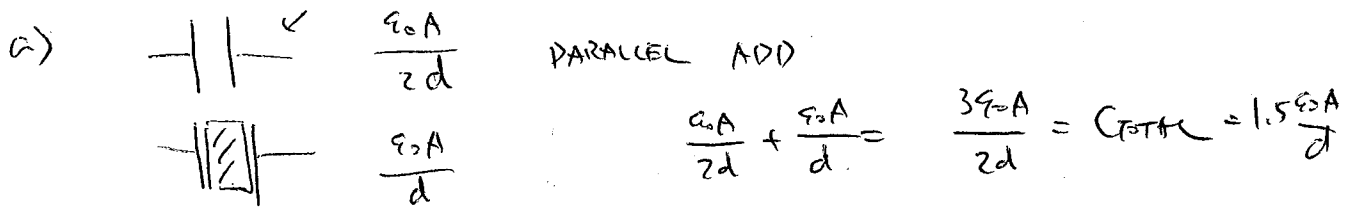 a) ε₀A/2d PARALLEL ADD
ε₀A/d ε₀A/2d + ε₀A/d = 3ε₀A/2d = CTOTAL = 1.5 ε₀A/d